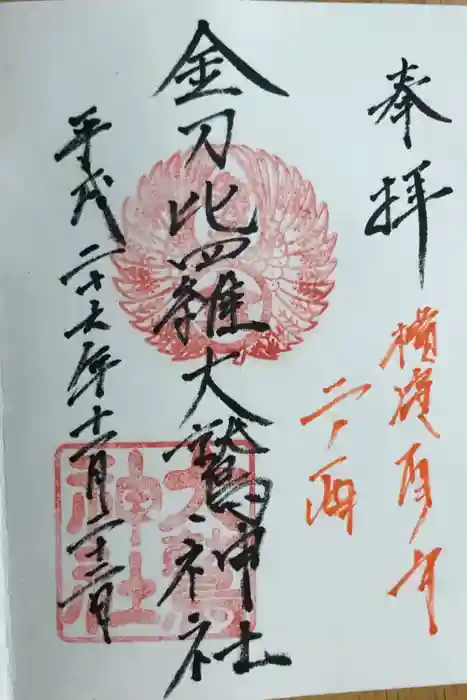 奉拝
横濱南区
二ノ酉
金刀比羅大鷲神社
平成二十六年十一月二十二日
大鷲神社